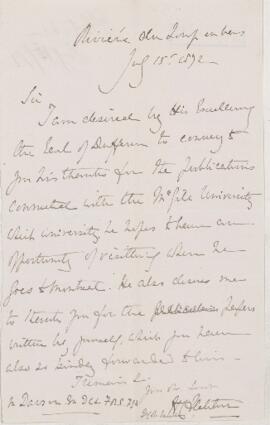 Rivière du Loup en bas
July 15th 1872
Sir
I am desired by His Excellency
the Earl of Dufferin to convey to
you his thanks for the publications
connected with the McGill University
which university he hopes to have an
opportunity of visiting when he
goes to Montreal. He also desires me
to thank you for the papers
written by yourself, which you have
also so kindly forwarded to him.
I remain Sir